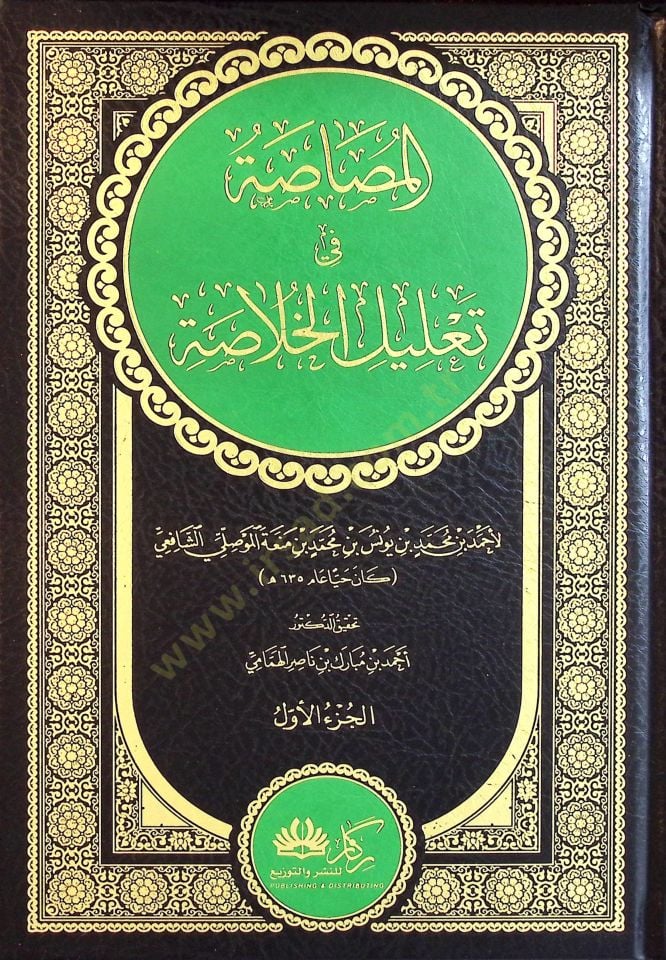 المُصَاصَةُ
في
تَعْلِيلِ الخُلَاصَةِ
لأحْمَد بْن مُحَمَّدِ بْنِ يُونُسَ بْنِ مُحَمَّدِ بْنِ مَنَعَة المَوْصِلِيِّ الشَّافِعِيِّ
(كَانَ حَيًّا عَام ٦٣٥ هـ)
تحقيق الدكتور
أَحْمَد بْن مُبَارَك بْن نَاصِر الهمَامِيّ
الجُزْءُ الأَوَّلُ
ركائز
للنشر والتوزيع
PUBLISHING & DISTRIBUTING